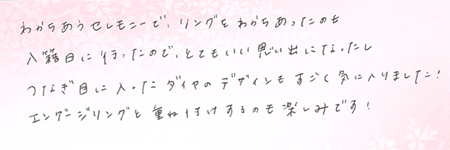 わかちあうセレモニーで、リングをわかちあったのも
入籍日に行ったので、とてもいい思い出になったし
つなぎ目に入ったダイヤのデザインもすごく気に入りました!
エンゲージリングと重ね付けするのも楽しみです!